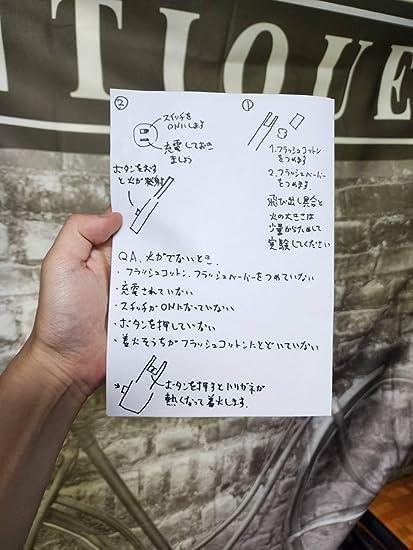 TIQUE
②
スイッチを
ONにします
充電しておき
ましょう
ボタンをおす
と火が発射
①
1.フラッシュコットン
をつめます
2.フラッシュペーパー
をつめます.
飛び出し具合と
火の大きさは
少量からためして
実験してください
QA.火がでないとき.
・フラッシュコットン、フラッシュペーパーをつめていない
・充電されていない
・スイッチがONになっていない
・ボタンを押していない
・着火そうちがフラッシュコットンにとどいていない
ボタンを押すとハリガネが
熱くなって着火します.